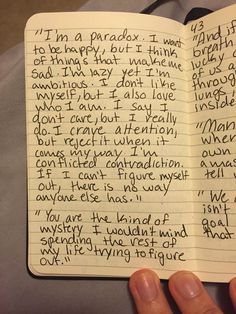 "I'm a paradox. I want
to be happy, but I think
of things that make me
sad. I'm lazy yet I'm
ambitious. I don't like
myself, but I also love
who I am. I say I
don't care, but I really
do. I crave attention,
but reject it when it
comes my way. I'm
conflicted contradiction.
If I can't figure myself
out, there is no way
anyone else has."
"You are the kind of
mystery I wouldn't mind
spending the rest of
my life trying to figure
out."
43
"And if
breath
lucky
of us a
through
lungs
inside
"Man
where
own
a mas
tell
"We
isn't
goal
that